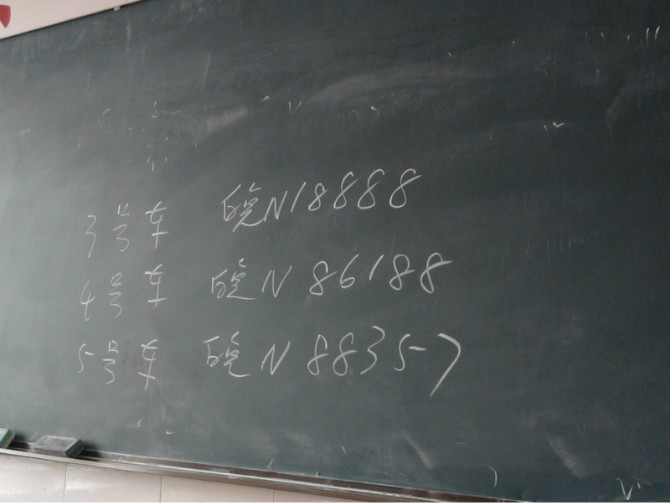 3号车 皖N18888
4号车 皖N86188
5号车 皖N88357